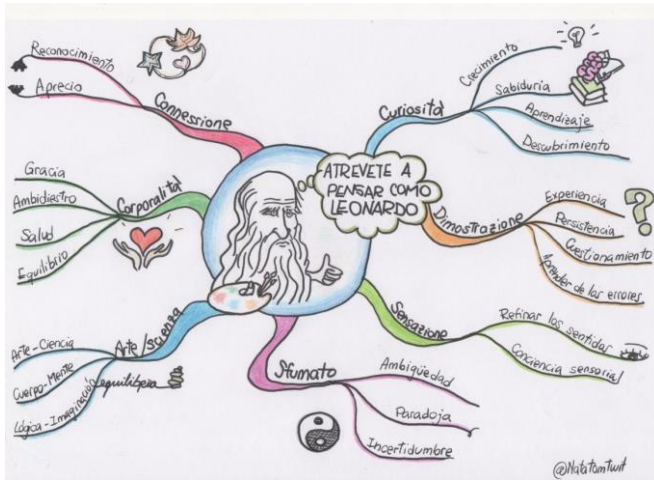 ATREVETE A
PENSAR COMO
LEONARDO
Curiositá
Crecimiento
Sabiduria
Aprendizaje
Descubrimiento
Dimostrazione
Experiencia
Persistencia
Cuestionamiento
Aprender de los errores
Sensazione
Refinar los sentidos
Conciencia sensorial
Sfumato
Ambigüedad
Paradoja
Incertidumbre
Arte/scienza
Arte-Ciencia
Cuerpo-Mente
Lógica-Imaginación
equilibrio
Corporalita
Gracia
Ambidiestro
Salud
Equilibrio
Connessione
Reconocimiento
Aprecio
@Natatomtwit